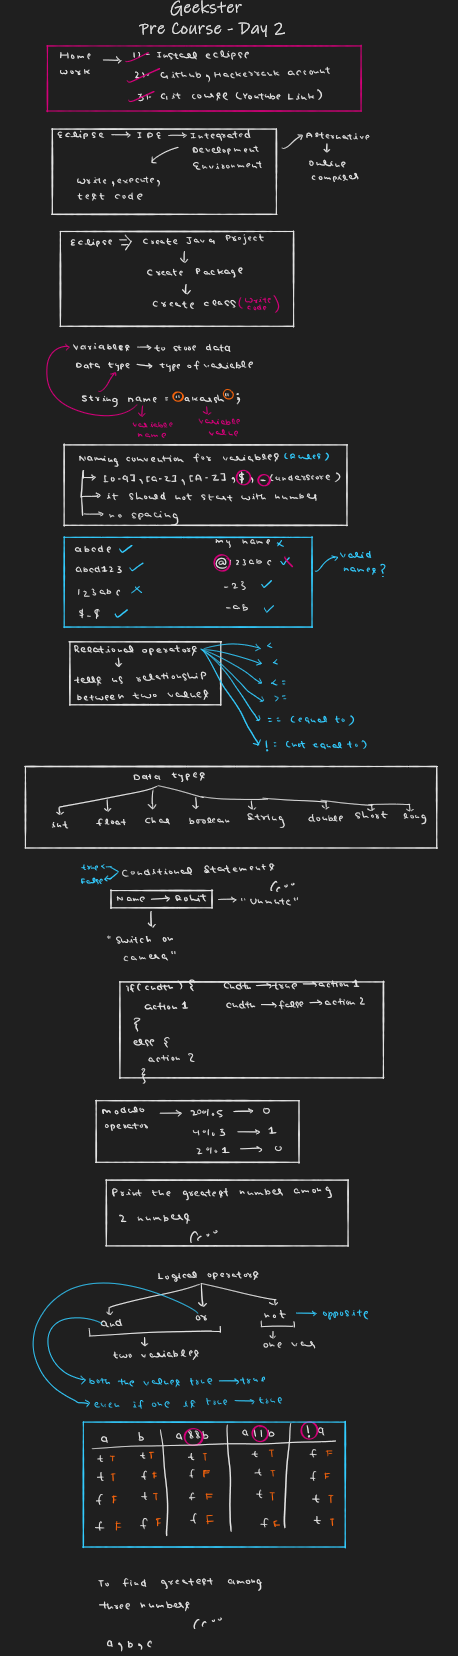 Geekster
Pre Course - Day 2
Home Work → 1) - Install eclipse
2) - Github, Hackerrank account
3) - Git course (Youtube Link)
Eclipse → IDE → Integrated
Development
Environment
Write, execute,
test code
Alternative
↓
Online
compiler
Eclipse ⇒ Create Java Project
↓
Create Package
↓
Create class (write code)
Variables → to store data
Data type → type of variable
String name = "akarsh";
variable name
variable value
Naming convention for variables (Rules)
→ [0-9], [a-z], [A-Z], $, _ (underscore)
→ it should not start with number
→ no spacing
abcde ✓
my name x
abcd123 ✓
@123abc x
123abc x
_23 ✓
$_$ ✓
_ab ✓
valid names?
Relational operators
↓
tells us relationship
between two values
<
<
<=
>=
== (equal to)
!= (not equal to)
Data types
int float char boolean String double short long
true
False
Conditional Statements
Name → Rohit → "Unmute"
↓
"Switch on
camera"
if(cndtn) {
action 1
}
else {
action 2
}
cndtn → true → action 1
cndtn → false → action 2
modulo operator → 20%5 → 0
4%3 → 1
2%1 → 0
Print the greatest number among
2 numbers
Logical operators
and or not → opposite
↓
two variables
↓
one var
both the values true → true
even if one is true → true
a b a&&b a||b !a
t T t T t T t T f F
t T f F f F t T f F
f F t T f F t T t T
f F f F f F f F t T
To find greatest among
three numbers
a, b, c